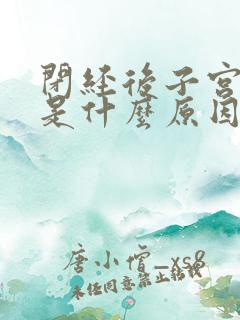 閉經後子宮
是什麼原因
唐小僧_xs8
未经同意禁止转载